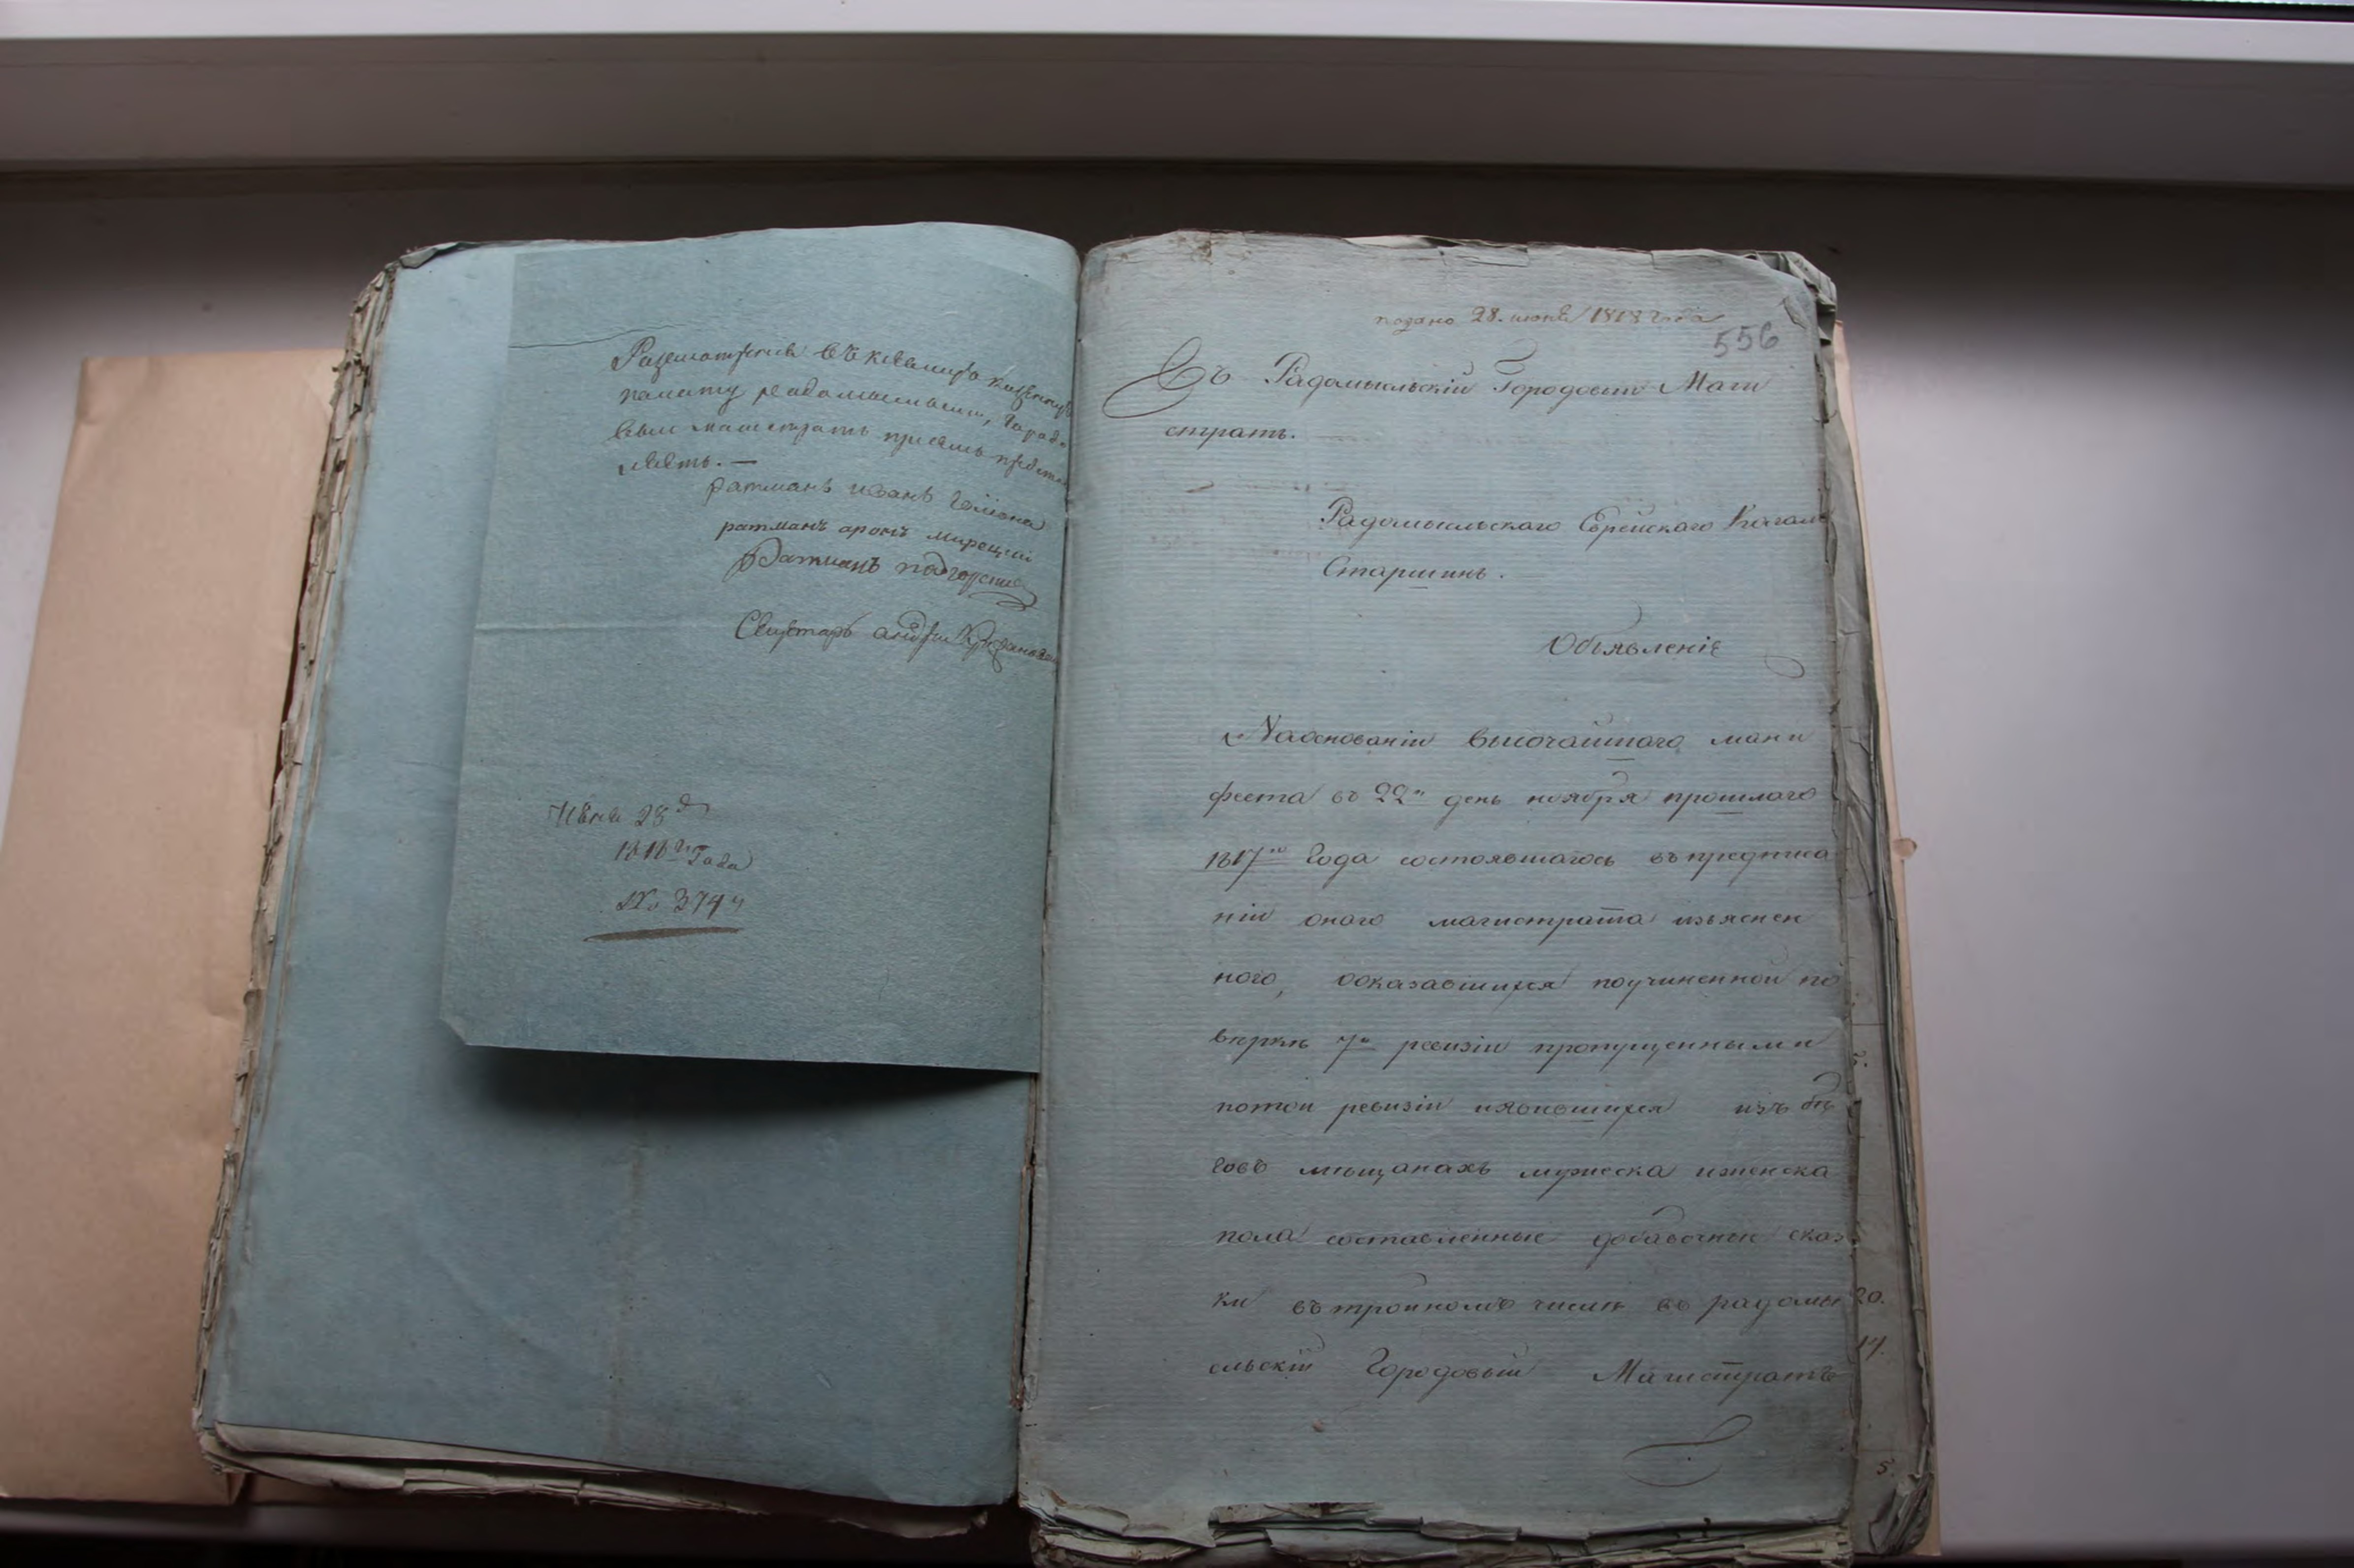 Разсмотренія въ кіевскую казенную
палату радомысльскій, городо
вый магистратъ при семъ предста
вляетъ. —
ратманъ иванъ
ратманъ аронъ мирецкій
Ратманъ подгорскій
Секретарь андрей
Июня 28 д
1818го Года
№ 374й
подано 28. июня 1818 года
556
Въ Радомысльскій Городовый Маги
стратъ.
Радомысльскаго Еврейскаго Кагала
Старшинъ.
Объявленіе
Наоснованіи высочайшаго мани
феста въ 22й день ноября прошлаго
1817го Года состоявшагось въ предписа
ніи онаго магистрата изъяснен
ного, ооказавшихся поучиненной по
вѣркѣ 7й ревизіи пропущенными
потой ревизіи иявившихся изъ бѣ
говъ мѣщанахъ мужеска иженска
пола составленные добавочные сказ
ки въ тройномъ числѣ въ радомы
сльскій Городовый Магистратъ
20.
17.
5.